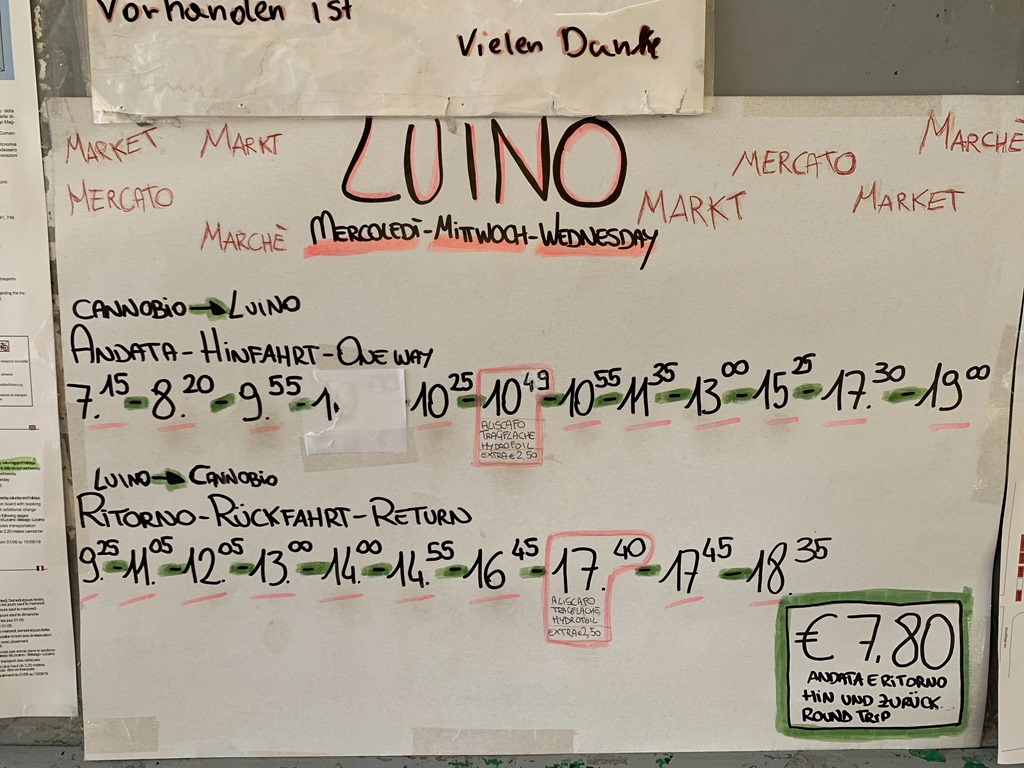 Vorhanden ist
Vielen Danke
LUINO
MARKET MARKT MERCATO MARCHÈ
MERCATO MARKT MARKET
MARCHÈ MERCOLEDÌ-MITTWOCH-WEDNESDAY
CANNOBIO → LUINO
ANDATA-HINFAHRT-ONE WAY
7.15 - 8.20 - 9.55 - 1. 10 25 - 10 49 - 10 55 - 11 35 - 13 00 - 15 25 - 17.30 - 19 00
ALISCAFO
TRAGFLACHE
HYDROFOIL
EXTRA € 2,50
LUINO → CANNOBIO
RITORNO-RÜCKFAHRT-RETURN
9.25 - 11.05 - 12.05 - 13.00 - 14.00 - 14.55 - 16 45 - 17.40 - 17 45 - 18.35
ALISCAFO
TRAGFLACHE
HYDROFOIL
EXTRA € 2,50
€ 7.80
ANDATA E RITORNO
HIN UND ZURÜCK.
ROUND TRIP